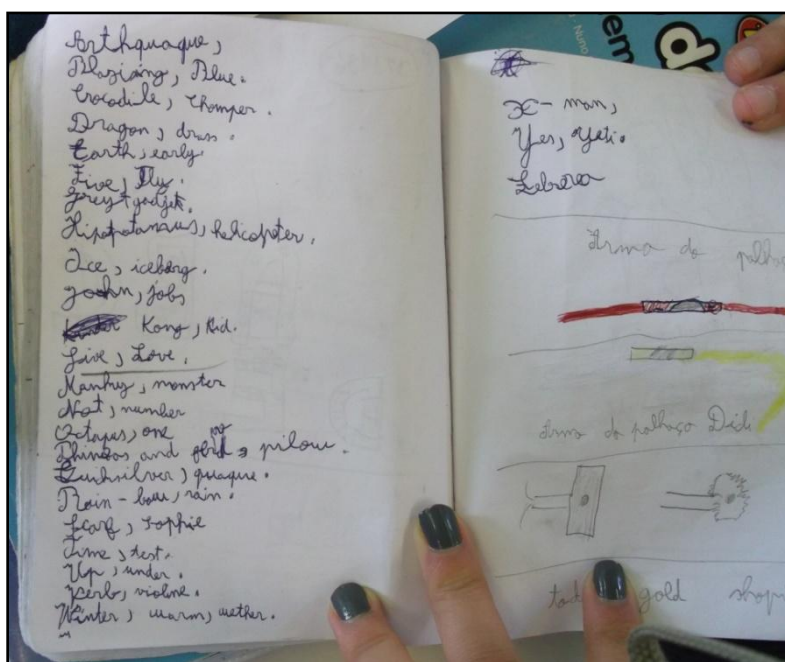 Arthquaque,
Blaziging, Blue.
Crocodile, Chomper.
Dragon, drass.
Earth, early.
Five, Fly.
Grey gadjet.
Hipopotamus, helicopter.
Ice, iceberg.
John, jobs
Kong, Kid.
Live, Love.
Manky, monster
Not, number
Octapus, one
Phineas and pilow.
Quiksilver, quaque.
Rain-bow, rain.
Scarf, Sophie
Time, test.
Up, under.
Verb, violine.
Winter, warm, wether.
X-man,
Yes, Yeti.
Arma do palhaç
Arma do palhaço Didi
gold shop
Nuno
em
do